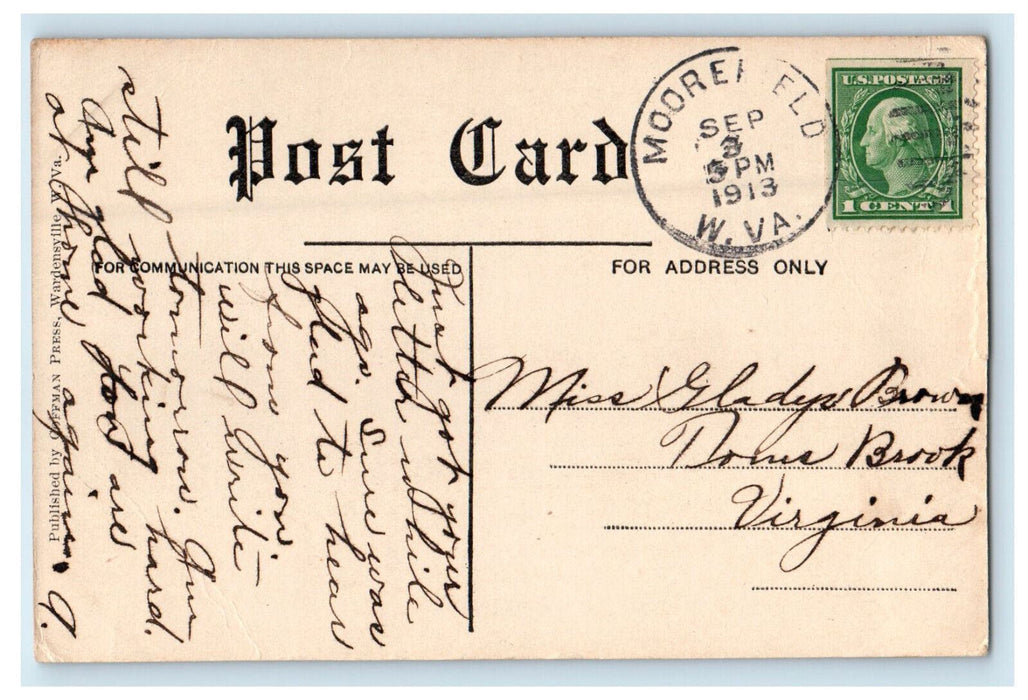 Post Card
MOOREFIELD
SEP
3
5 PM
1913
W. VA.
U.S. POSTAGE
1 CENT 1
FOR COMMUNICATION THIS SPACE MAY BE USED
FOR ADDRESS ONLY
Miss Gladys Brown
Toms Brook
Virginia
Just got your
letter while
ago. Sure was
glad to hear
from you
will write
tomorrow. Am
still working hard.
Am glad you are
at home again. A.
Published by COFFMAN PRESS, Wardensville, W. Va.